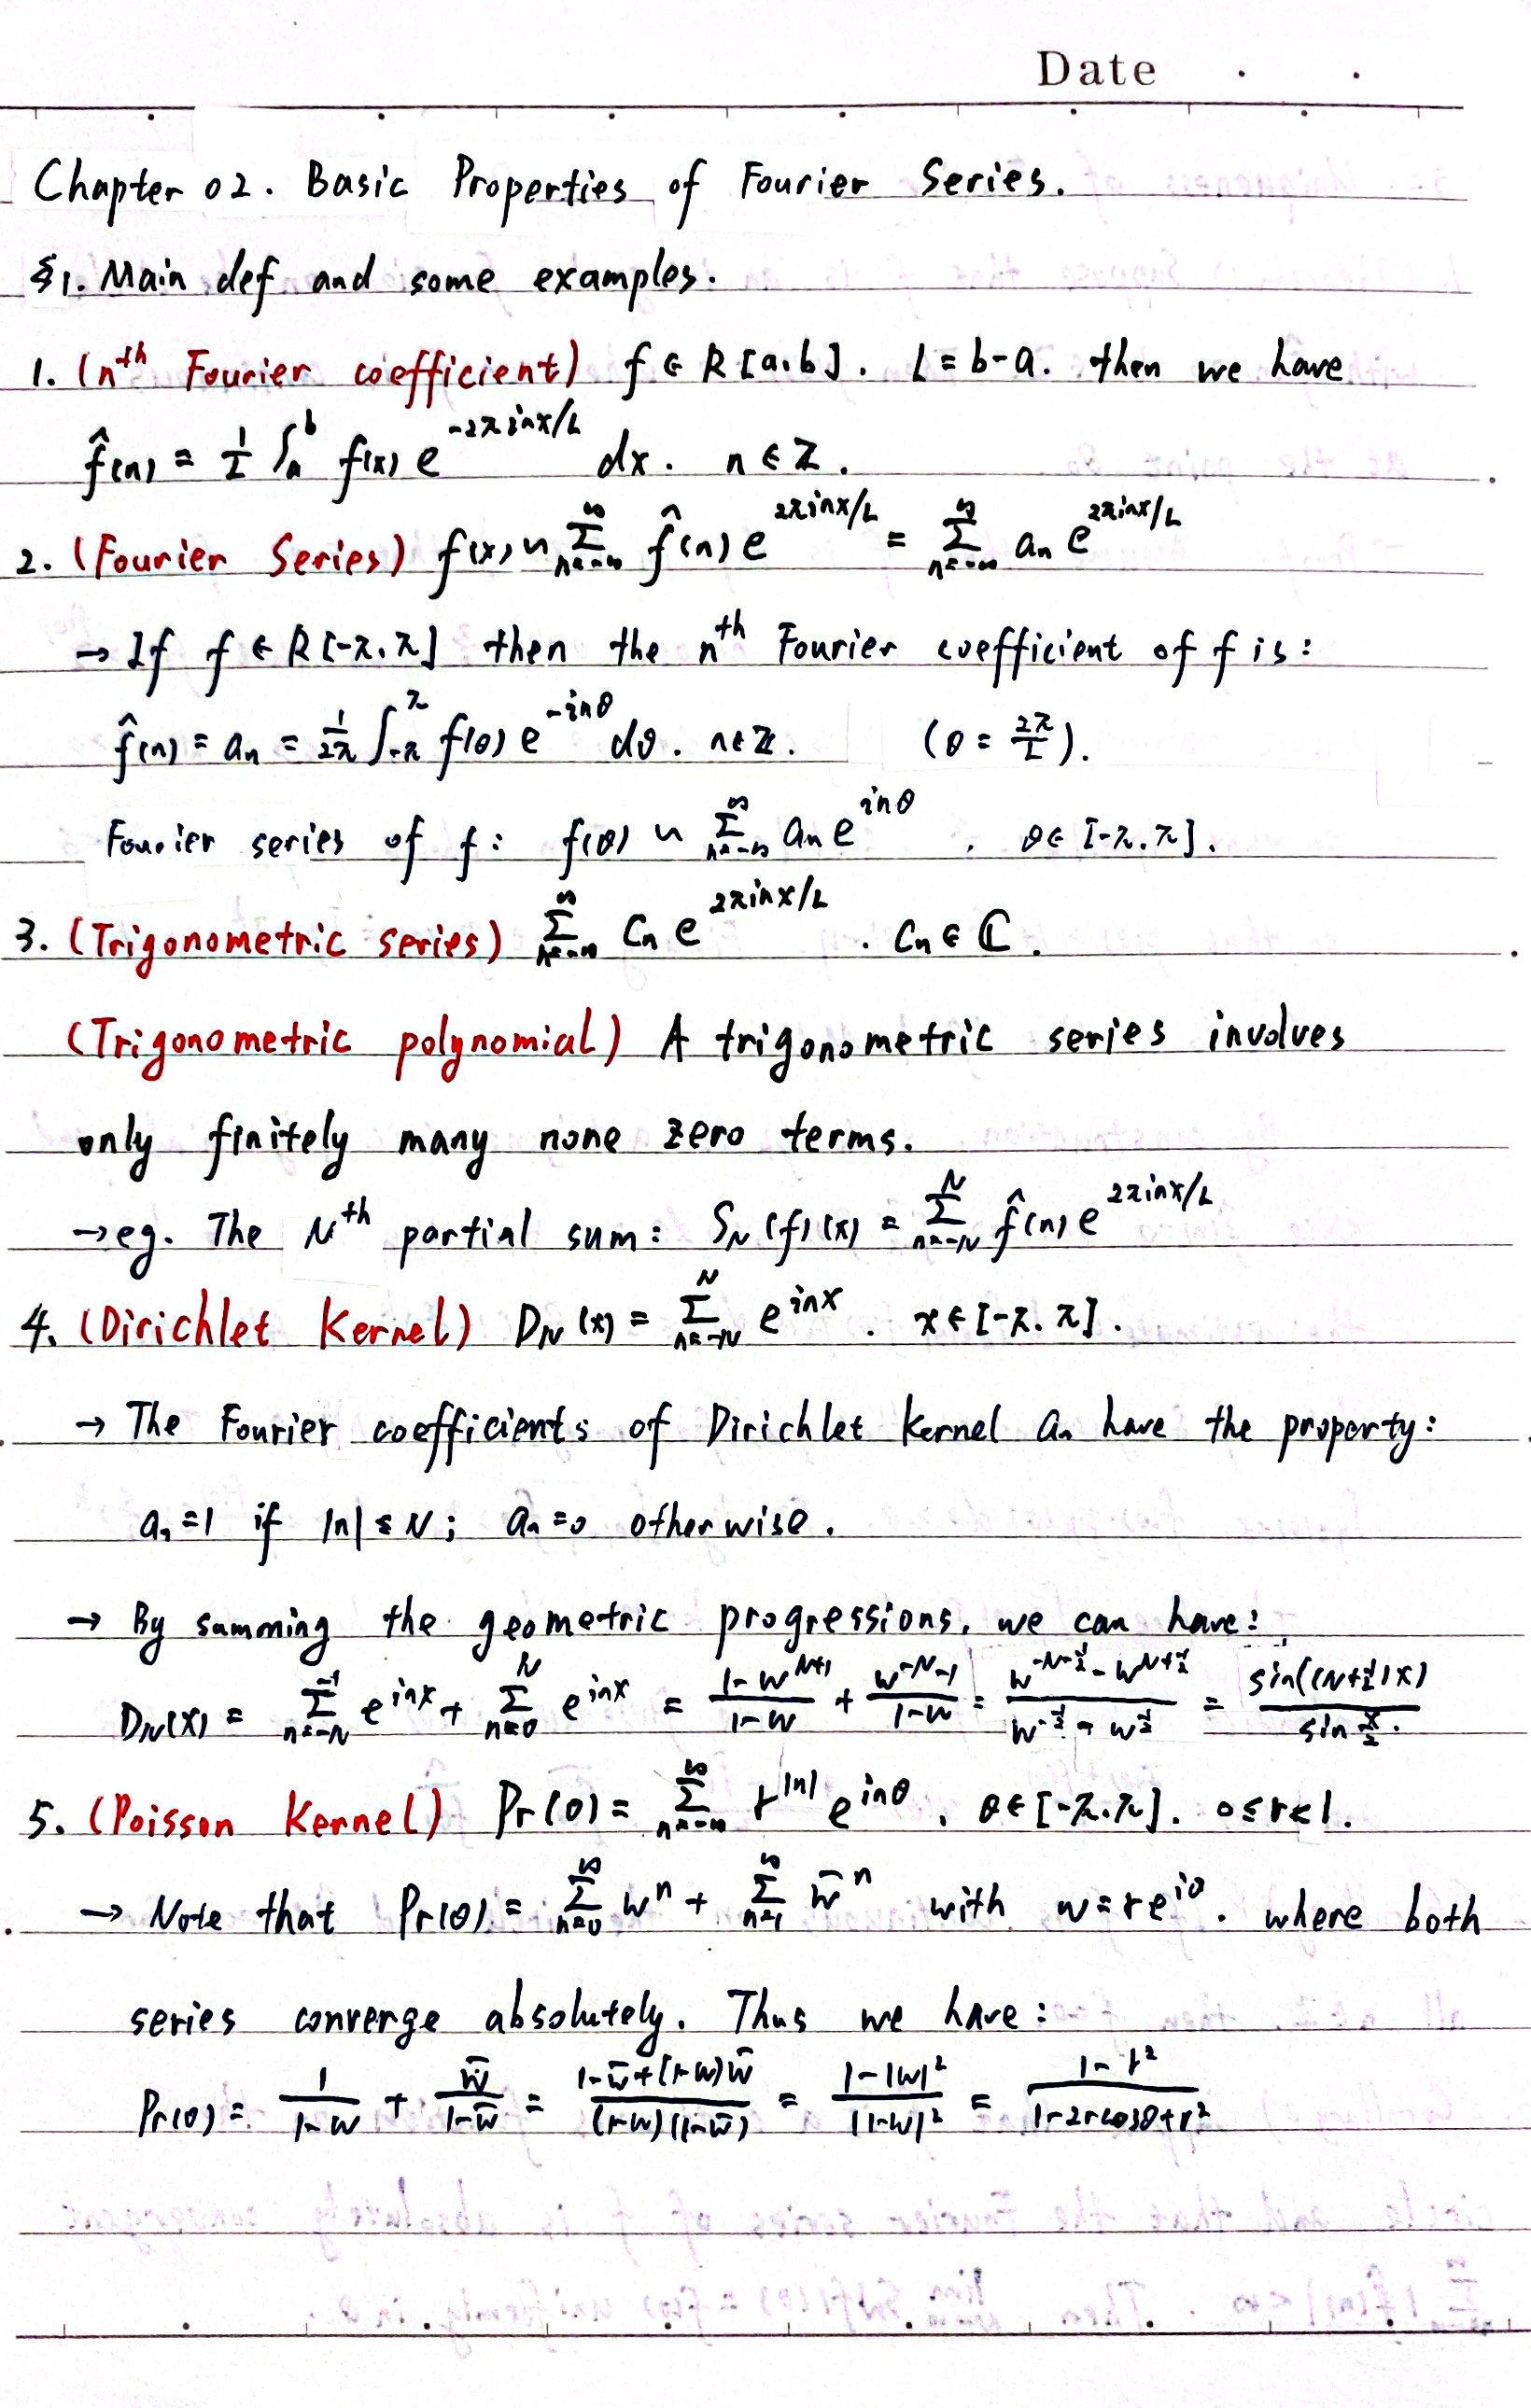 Date . .
Chapter 02. Basic Properties of Fourier Series.
§1. Main def and some examples.
1. (nᵗʰ Fourier coefficient) f ∈ R [a.b]. L = b-a. then we have
f̂(n) = 1/L ∫ₐᵇ f(x) e^{-2πinx/L} dx. n ∈ Z.
2. (Fourier Series) f(x) ~ Σ_{n=-∞}^{∞} f̂(n) e^{2πinx/L} = Σ_{n=-∞}^{∞} aₙ e^{2πinx/L}
→ If f ∈ R [-π.π] then the nᵗʰ Fourier coefficient of f is:
f̂(n) = aₙ = 1/2π ∫_{-π}^{π} f(θ) e^{-inθ} dθ. n∈Z. (θ = 2π/L).
Fourier series of f: f(θ) ~ Σ_{n=-∞}^{∞} aₙ e^{inθ}. θ∈ [-π.π].
3. (Trigonometric series) Σ_{n=-∞}^{∞} Cₙ e^{2πinx/L}. Cₙ ∈ ℂ.
(Trigonometric polynomial) A trigonometric series involves
only finitely many none zero terms.
→eg. The Nᵗʰ partial sum: S_N (f) (x) = Σ_{n=-N}^{N} f̂(n) e^{2πinx/L}
4. (Dirichlet Kernel) D_N (x) = Σ_{n=-N}^{N} e^{inx}. x ∈ [-π.π].
→ The Fourier coefficients of Dirichlet Kernel aₙ have the property:
aₙ=1 if |n| ≤ N; aₙ=0 otherwise.
→ By summing the geometric progressions, we can have:
D_N(x) = Σ_{n=-N}^{-1} e^{inx} + Σ_{n=0}^{N} e^{inx} = (1-w^{N+1})/(1-w) + (w^{-N}-1)/(1-w) = (w^{-N-1/2} - w^{N+1/2})/(w^{-1/2} - w^{1/2}) = sin((N+1/2)x)/sin x/2.
5. (Poisson Kernel) Pr(θ) = Σ_{n=-∞}^{∞} r^{|n|} e^{inθ}. θ∈[-π.π]. 0≤r<1.
→ Note that Pr(θ) = Σ_{n=0}^{∞} wⁿ + Σ_{n=1}^{∞} w̄ⁿ with w=re^{iθ}. where both
series converge absolutely. Thus we have:
Pr(θ) = 1/(1-w) + w̄/(1-w̄) = (1-w̄+(1-w)w̄)/((1-w)(1-w̄)) = (1-|w|²)/|1-w|² = (1-r²)/(1-2rcosθ+r²)